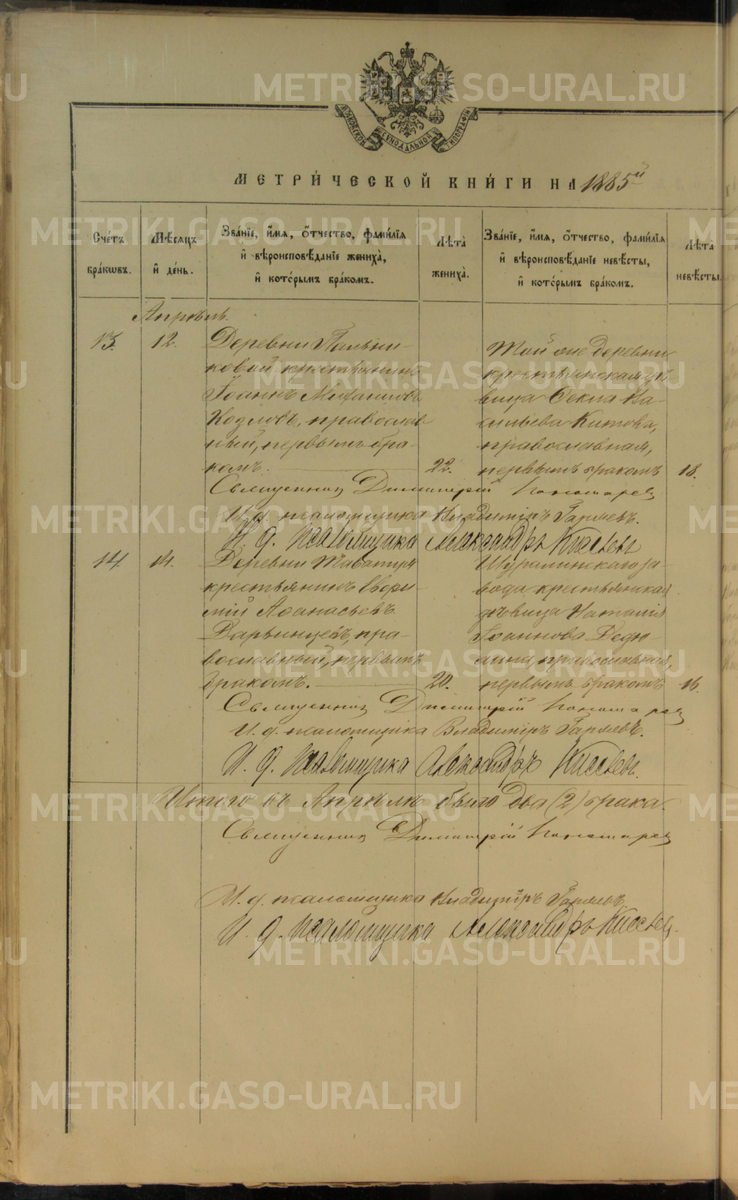 МЕТРИ́ЧЕСКОЙ КНИ́ГИ НА 1885й
Сче́тъ бра́кωвъ.
Мѣ́сяцъ и҆ де́нь.
Зва́нїе, и҆́мя, ѻ҆́тчество, фами́лїя и҆ вѣроисповѣ́данїе жениха̀, и҆ кото́рымъ бра́комъ.
Лѣ́та жениха̀.
Зва́нїе, и҆́мя, ѻ҆́тчество, фами́лїя и҆ вѣроисповѣ́данїе невѣ́сты, и҆ кото́рымъ бра́комъ.
Лѣ́та невѣ́сты.
Апрѣль.
13.
12.
Деревни Пальни-
ковой крестьянинъ
Іоаннъ
Козловъ, православ
ный, первымъ бра-
комъ.
22.
Той же деревни
крестьянская дѣ-
вица Ва-
сильева Китова,
православная,
первымъ бракомъ
18.
Священникъ Димитрій Пономарев
И. д. псаломщика Владиміръ Гаряевъ.
И. д. Псаломщика Александръ Киселев
14
14.
Деревни Таватуя
крестьянинъ Евфи-
мій Аѳанасьевъ
пра-
вославный, первымъ
бракомъ.
20.
Шуралинскаго за-
вода крестьянская
дѣвица Наталія
Іоаннова Ведю-
нина, православная,
первымъ бракомъ
16.
Священникъ Димитрій Пономарев
И. д. псаломщика Владиміръ Гаряевъ.
И. д. Псаломщика Александръ Киселев.
Итого въ Апрѣлѣ было два (2) брака.
Священникъ Димитрій Пономарев
И. д. псаломщика Владиміръ Гаряевъ.
И. д. Псаломщика Александръ Киселев.
METRIKI.GASO-URAL.RU